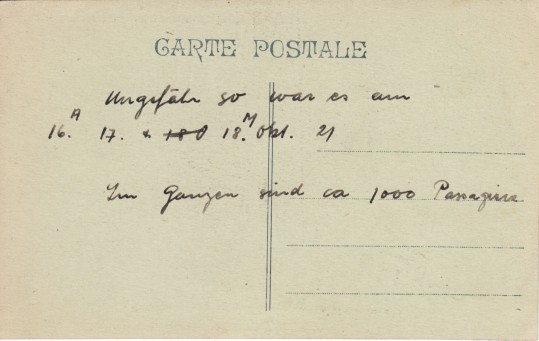 CARTE POSTALE
Ungefähr so war es am
16.A 17. & 18.M Okt. 21
Im Ganzen sind ca 1000 Passagiere